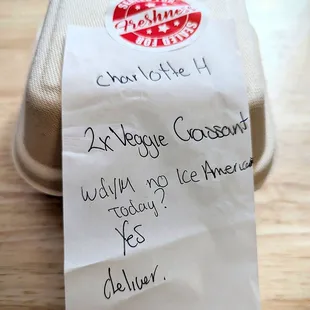 Freshness
SEALED FOR
charlotte H
2x Veggie Croissant
no Ice American
Today?
Yes
deliver.